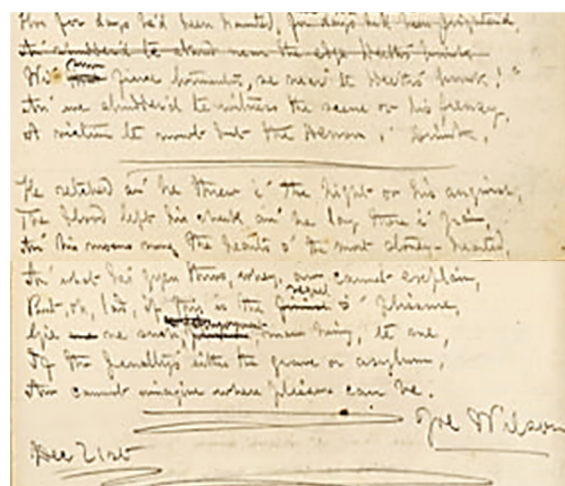 For for days he'd been haunted, for days he'd been frighten'd,
An' shudder'd to stand near the edge Deeth's brink
Wi' fierce torments, se near to Deeth's brink!"
An' we shudder'd te witness the scene or his frenzy,
A victim te nowt but the Demon, Drink.
He retched an' he threw i' the hight or his anguish,
The blood left his cheek an' he lay there i' pain,
An' his moans rung the hearts o' the most stoney-hearted,
An' what he'd gyen throo, whey, aw cannot explain,
But, oh, lad, if this is the sequel o' pleasure,
Gie me ne such enjoyment, man, te me,
If the penalty's either the grave or asylum,
Aw cannot imagine where pleasure can be.
Joe Wilson
Dec 21st